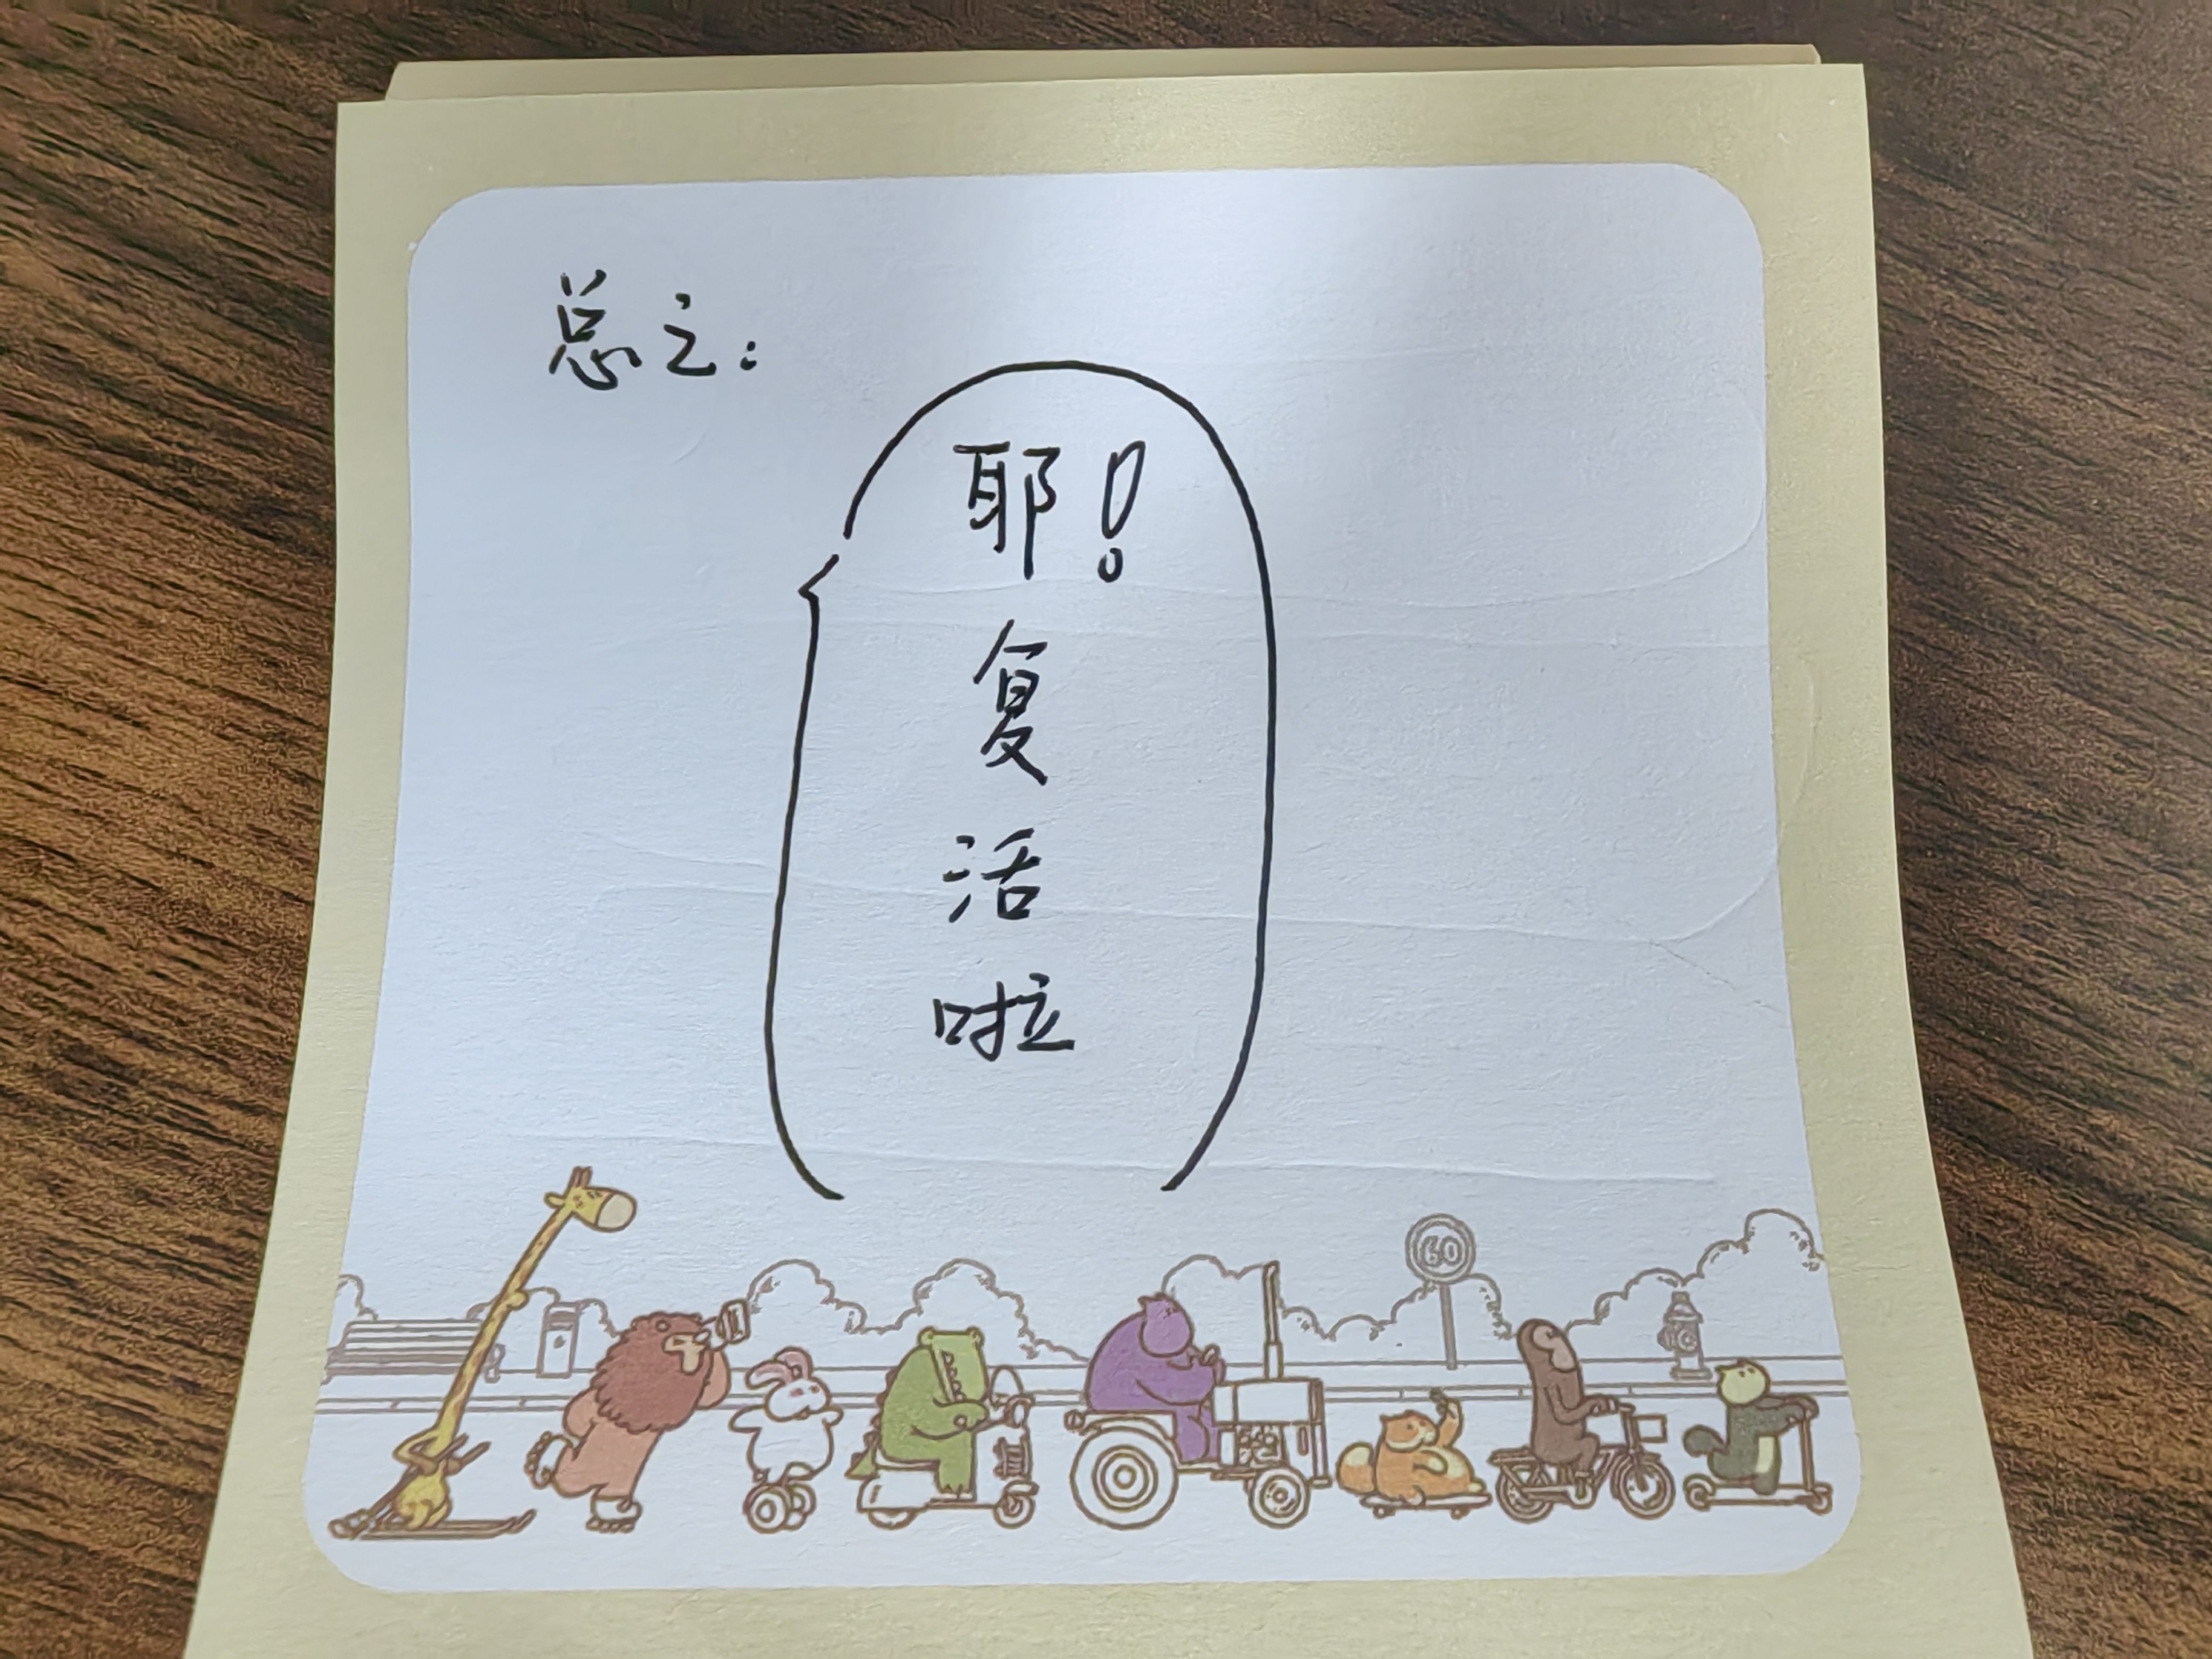 总之:
耶!
复
活
啦
60